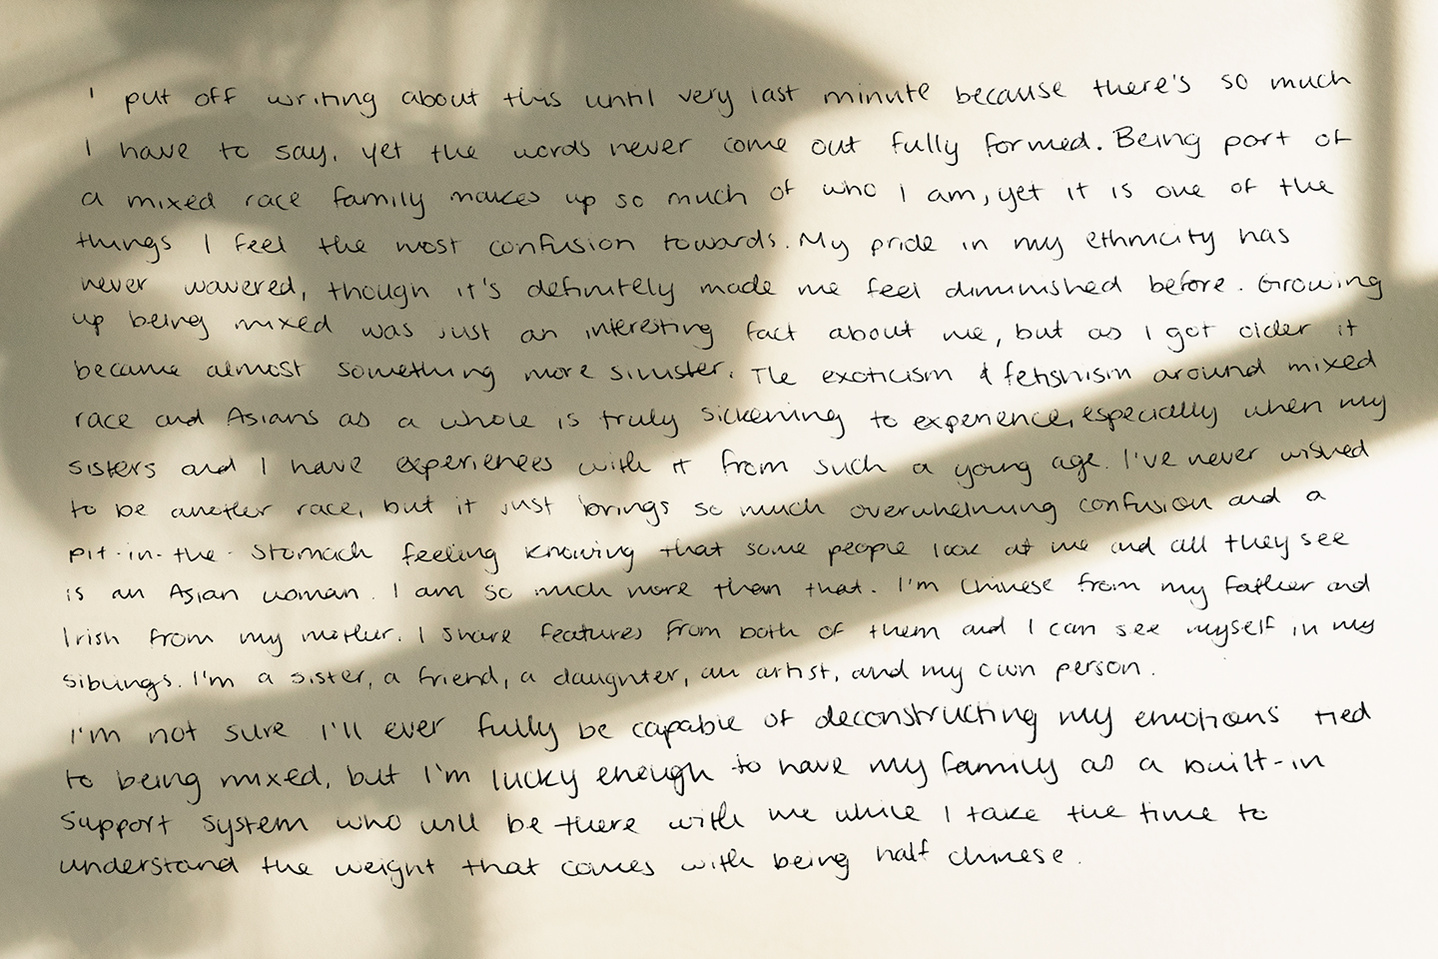 I put off writing about this until very last minute because there's so much
I have to say, yet the words never come out fully formed. Being part of
a mixed race family makes up so much of who I am, yet it is one of the
things I feel the most confusion towards. My pride in my ethnicity has
never wavered, though it's definitely made me feel diminished before. Growing
up being mixed was just an interesting fact about me, but as I got older it
became almost something more sinister. The exoticism & fetishism around mixed
race and Asians as a whole is truly sickening to experience, especially when my
sisters and I have experiences with it from such a young age. I've never wished
to be another race, but it just brings so much overwhelming confusion and a
pit-in-the-stomach feeling knowing that some people look at me and all they see
is an Asian woman. I am so much more than that. I'm Chinese from my father and
Irish from my mother. I share features from both of them and I can see myself in my
siblings. I'm a sister, a friend, a daughter, an artist, and my own person.
I'm not sure I'll ever fully be capable of deconstructing my emotions tied
to being mixed, but I'm lucky enough to have my family as a built-in
support system who will be there with me while I take the time to
understand the weight that comes with being half chinese.